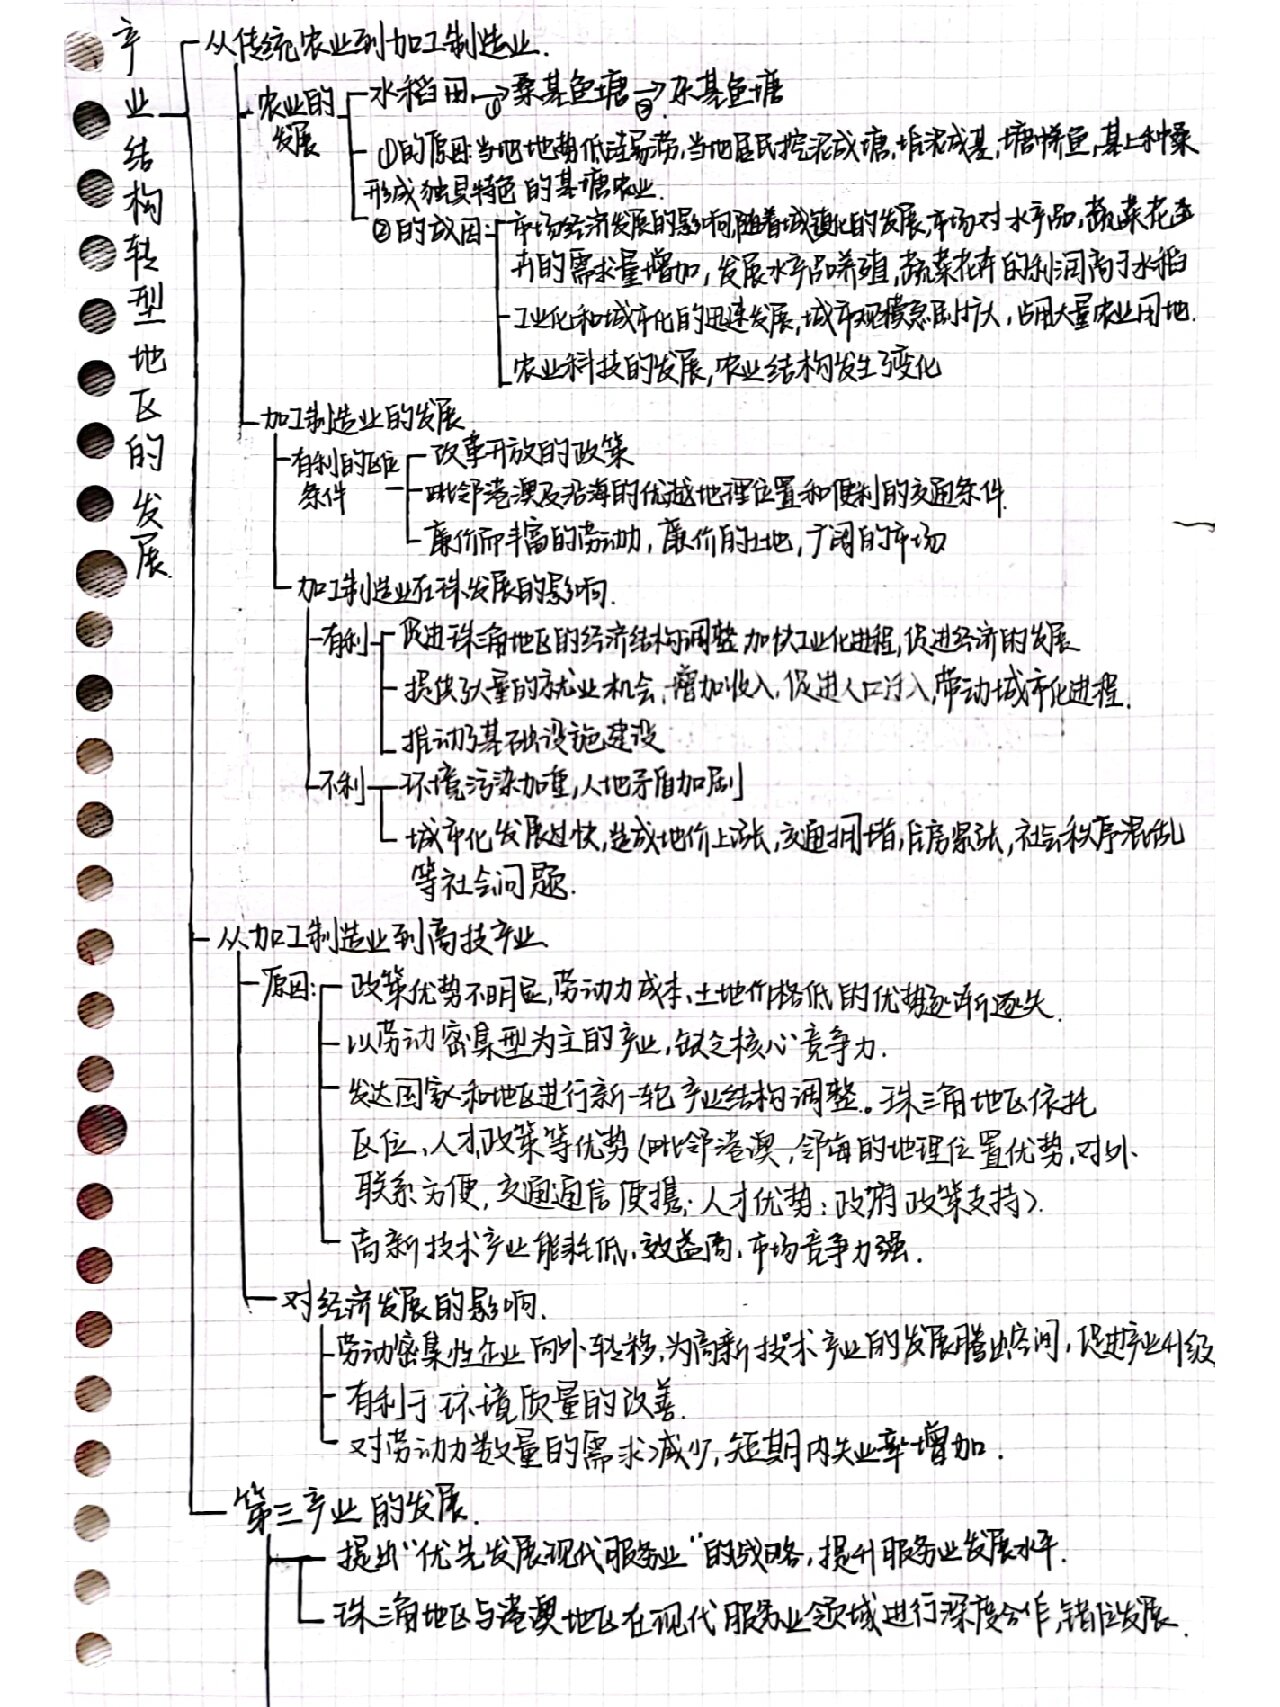 产业结构转型地区的发展
从传统农业到加工制造业.
农业的发展
水稻田①→桑基鱼塘②→果基鱼塘
①的原因:当地地势低洼易涝,当地居民挖泥成塘,堆泥成基,塘中养鱼,基上种桑
形成独具特色的基塘农业.
②的成因:市场经济发展的影响,随着城镇化的发展,市场对水产品,蔬菜花
卉的需求量增加,发展水产品养殖,蔬菜花卉的利润高于水稻
工业化和城市化的迅速发展,城市规模急剧扩大,占用大量农业用地.
农业科技的发展,农业结构发生了变化
加工制造业的发展
有利的区位条件
改革开放的政策
毗邻港澳及沿海的优越地理位置和便利的交通条件.
廉价而丰富的劳动力,廉价的土地,广阔的市场
加工制造业在珠发展的影响.
有利
促进珠三角地区的经济结构调整,加快工业化进程,促进经济的发展
提供了大量的就业机会,增加收入,促进人口迁入,带动城市化进程.
推动了基础设施建设
不利
环境污染加重,人地矛盾加剧
城市化发展过快,造成地价上涨,交通拥堵,住房紧张,社会秩序混乱
等社会问题.
从加工制造业到高技产业
原因:
政策优势不明显,劳动力成本、土地价格低的优势逐渐逐失.
以劳动密集型为主的产业,缺乏核心竞争力.
发达国家和地区进行新一轮产业结构调整。珠三角地区依托
区位,人才,政策等优势(毗邻港澳,邻海的地理位置优势,对外
联系方便,交通通信便携;人才优势;政府政策支持).
高新技术产业能耗低,效益高,市场竞争力强.
对经济发展的影响.
劳动密集性企业向外转移,为高新技术产业的发展腾出空间,促进产业升级
有利于环境质量的改善.
对劳动力数量的需求减少,短期内失业率增加.
第三产业的发展.
提出“优先发展现代服务业”的战略,提升服务业发展水平.
珠三角地区与港澳地区在现代服务业领域进行深度合作,错位发展.